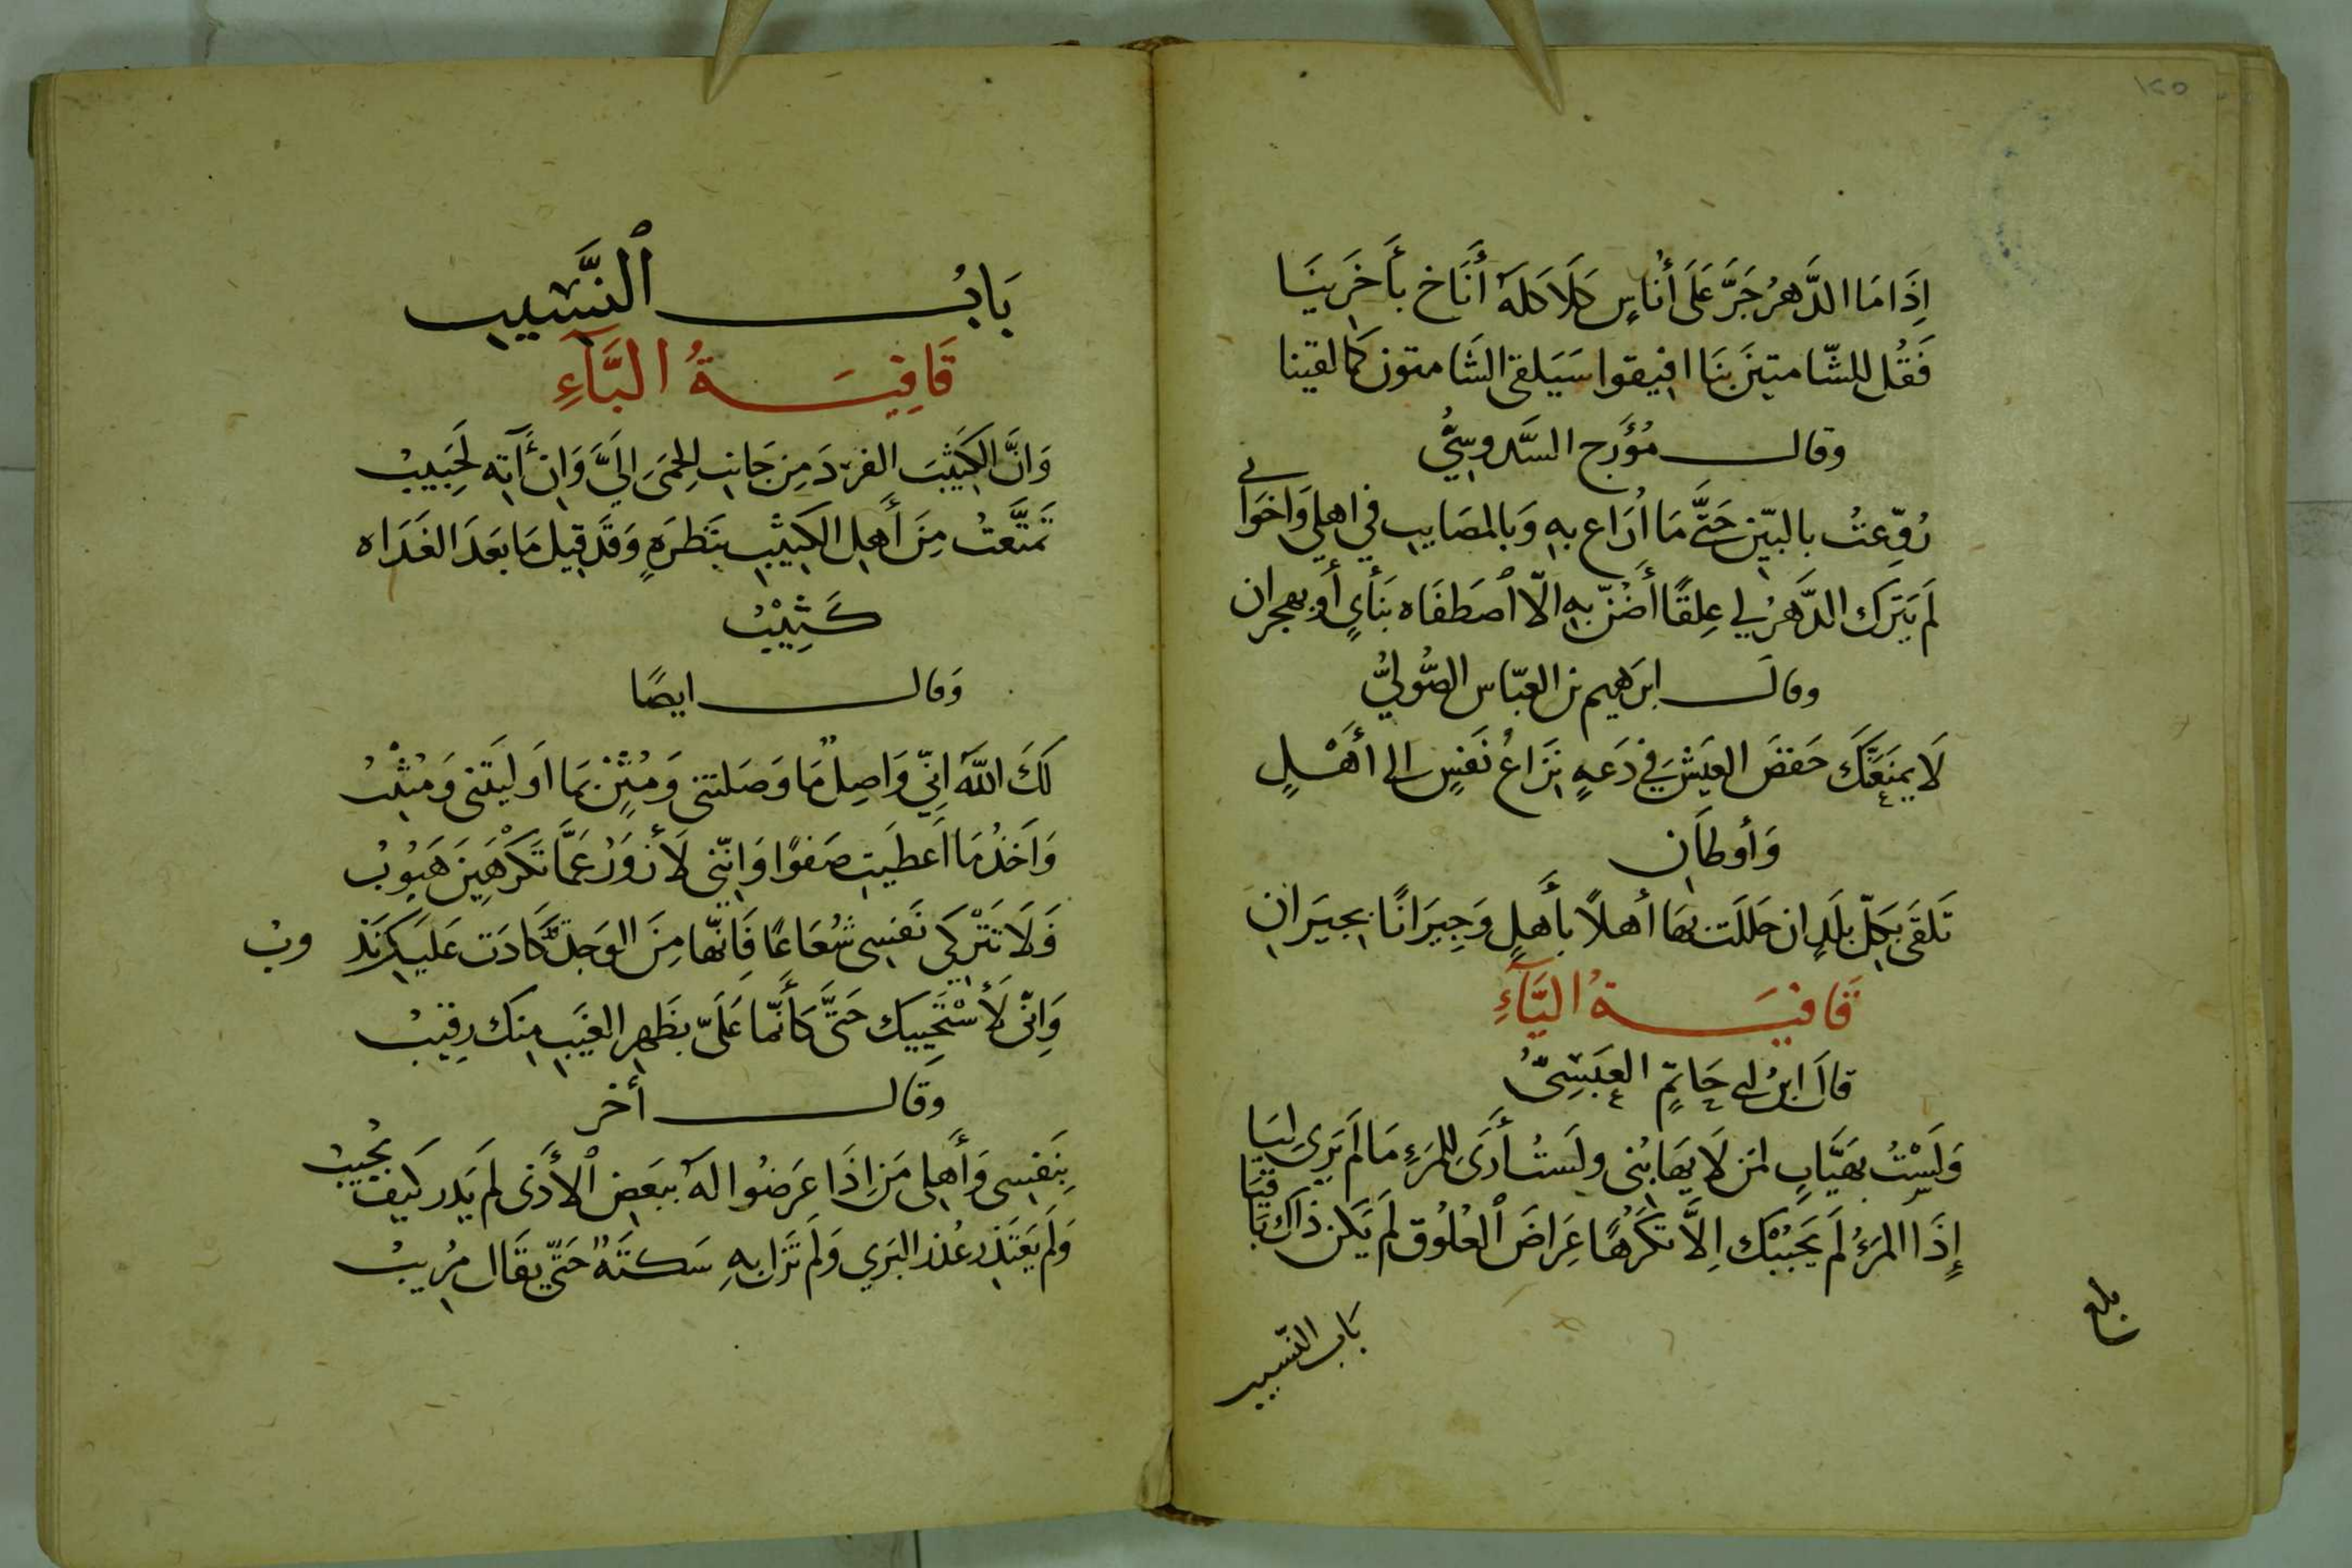 ١٢٥
إِذَا مَا الدَّهرُ جَرَّ عَلَى أُنَاسٍ كَلَاكلَهُ أَنَاخ بأَخَرينَا
فَقُل للشّامتينَ بنَا افيقوا سَيَلقى الشَامتون كمَا لقينا
وقال مُؤَرج السَّدوسِيُّ
رُوِّعتُ بالبَين حَتَّى مَا أُرَاع بهِ وَبالمصَايب في اهلي وَاخوَاني
لَم يَترَك الدَّهرُ لي عِلقًا أَضنّ بهِ الّا ٱصطَفَاه بنَأيٍ أو بهجران
وقالَ ابرَهيم بن العبّاس الصُّوليُّ
لَا يمنَعَنَّكَ خفضَ العيَش في دَعَهٍ نزَاعُ نَفسٍ الى أهَلٍ
وَأوطَان
تَلقَى بكلّ بلَدٍ ان حَللَت بهَا أهلاً بأَهلٍ وَجِيرَانًا بجيرَانِ
قَافيَةُ اليَآءِ
قالَ ابنُ ابي حَاتمٍ العبَسِيُّ
وَلَسْتُ بهَيَّابٍ لمَن لَا يهَابُنى ولَستُ أَرَى للمَرءِ مَا لَم يَرى ليَا
إِذَا المَرءُ لَم يحببْك اِلَّا تكَرّهًا عِرَاضَ ٱلعُلوُق لَم يَكن ذَاك بَاقيَا
بلغ
بَاب النّسيب
بَابُ ٱلنَّسيب
قَافِيَةُ البَآءِ
وَانَّ الكَثيبَ الفَردَ مِن جَانبِ الحمَى الَيَّ وَان لَم آته لَحَبيبُ
تمَتَّعتُ مِن أَهلِ الكَثيبِ بنَظرَهٍ وَقَد قيل مَا بَعدَ الغَدَاه
كَثِيْبُ
وَقال ايضًا
لَكَ اللّهُ انِّي وَاصِلٌ مَا وَصَلتني وَمُثْنٍ بمَا اَوليَتني وَمُثيْبُ
وَآخذُ مَا اَعطَيتِ صَفوًا وَانّني لَأَزوَرُ عَمَّا تَكرَهينَ هَيُوبُ
فَلَا تَتْرُكى نَفسى شُعَاعًا فَانّهَا مِنَ الوَجد كَادَت عَليَك تذ وبُ
وَانّى لَأَسْتَحييِك حَتَّى كَأَنّما عَلَىّ بظَهرِ الغَيب منك رقيبُ
وَقَال أخر
بِنَفسِى وَأَهلِى مَن اِذَا عَرَضُوا لَهُ ببَعضِ ٱلأَذَى لَم يَدر كَيف يُجيبُ
وَلَم يَعتَذر عُذرَ البَري وَلَم تَزَل بهِ سَكتَةٌ حَتّى يقَال مُرِيبُ